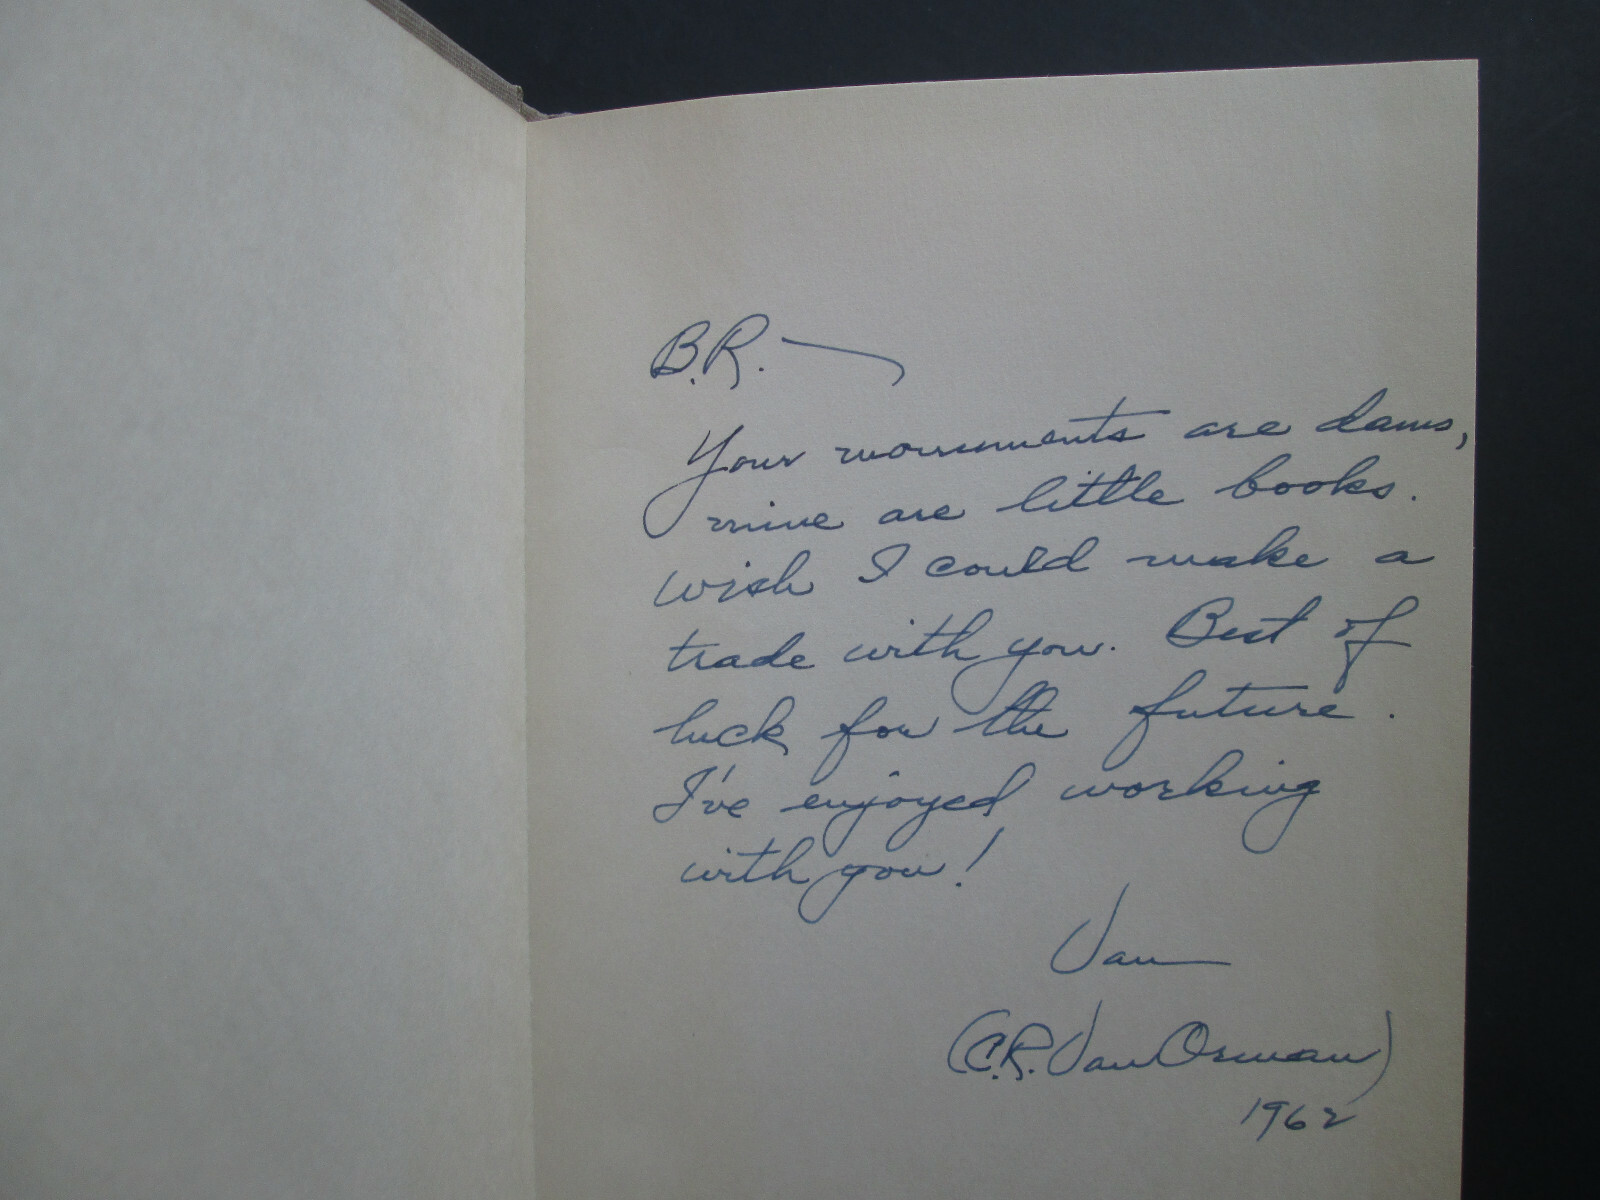 B.R. —
Your monuments are dams,
mine are little books.
wish I could make a
trade with you. Best of
luck for the future.
I've enjoyed working
with you!
Van
(C.R. Van Orman)
1962